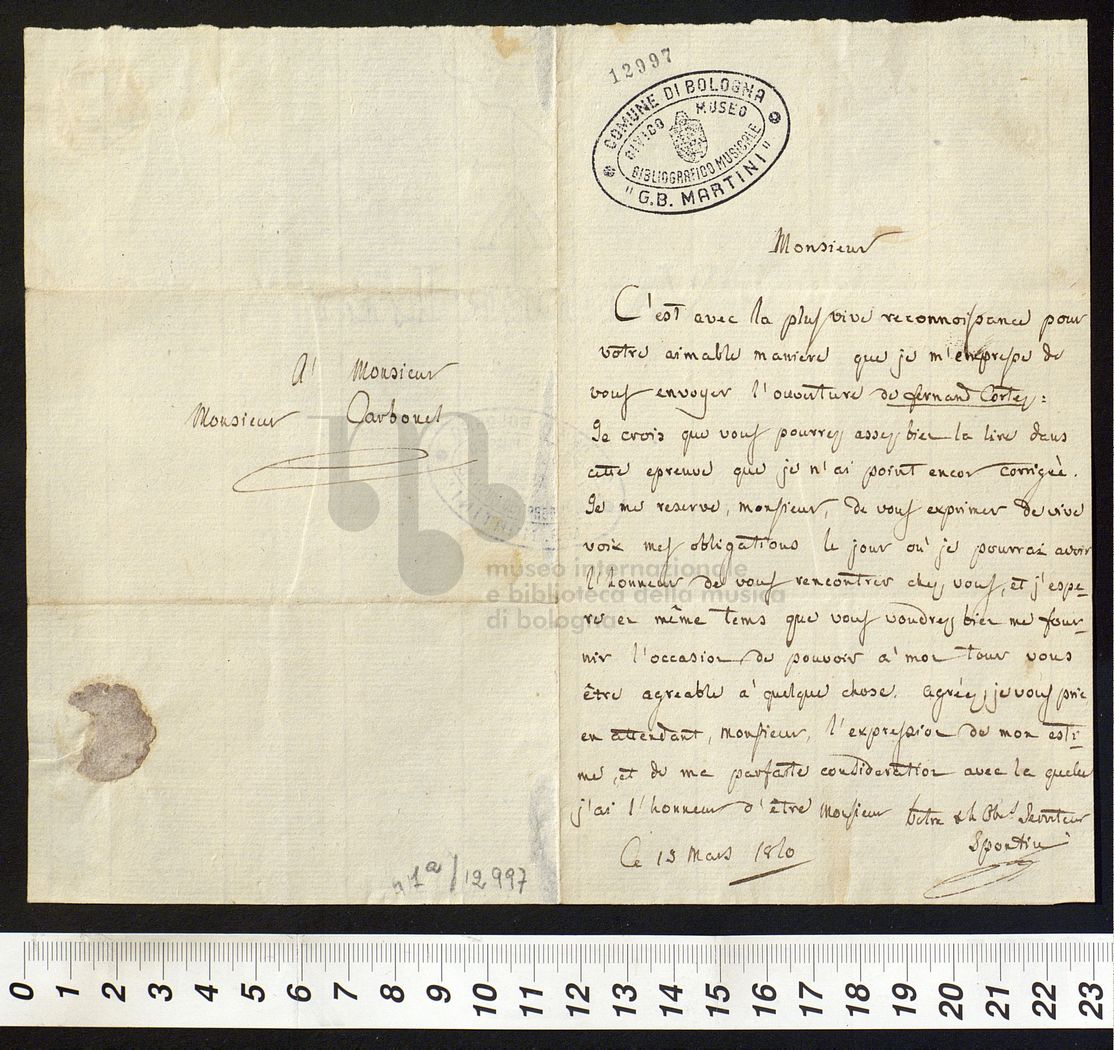 12997
COMUNE DI BOLOGNA
CIVICO MUSEO
BIBLIOGRAFICO MUSICALE
"G.B. MARTINI"
A' Monsieur
Monsieur Carbonel
museo internazionale
e biblioteca della musica
di bologna
n 1a/12997
Monsieur
C'est avec la plus vive reconnoissance pour
votre aimable maniere que je m'empresse de
vous envoyer l'ouverture de fernand Cortez:
Je crois que vous pourrez assez bien la lire dans
cette epreuve que je n'ai point encor corrigée.
Je me reserve, monsieur, de vous exprimer de vive
voix mes obligations le jour où je pourrai avoir
l'honneur de vous rencontrer chez vous, et j'espe-
re en même tems que vous voudrez bien me four-
nir l'occasion de pouvoir à mon tour vous
être agreable à quelque chose. agréez, je vous prie
en attendant, Monsieur, l'expression de mon esti-
me, et de ma parfaite consideration avec la quelle
j'ai l'honneur d'être Monsieur Votre Serviteur
Spontini
Ce 13 Mars 1810
0 1 2 3 4 5 6 7 8 9 10 11 12 13 14 15 16 17 18 19 20 21 22 23